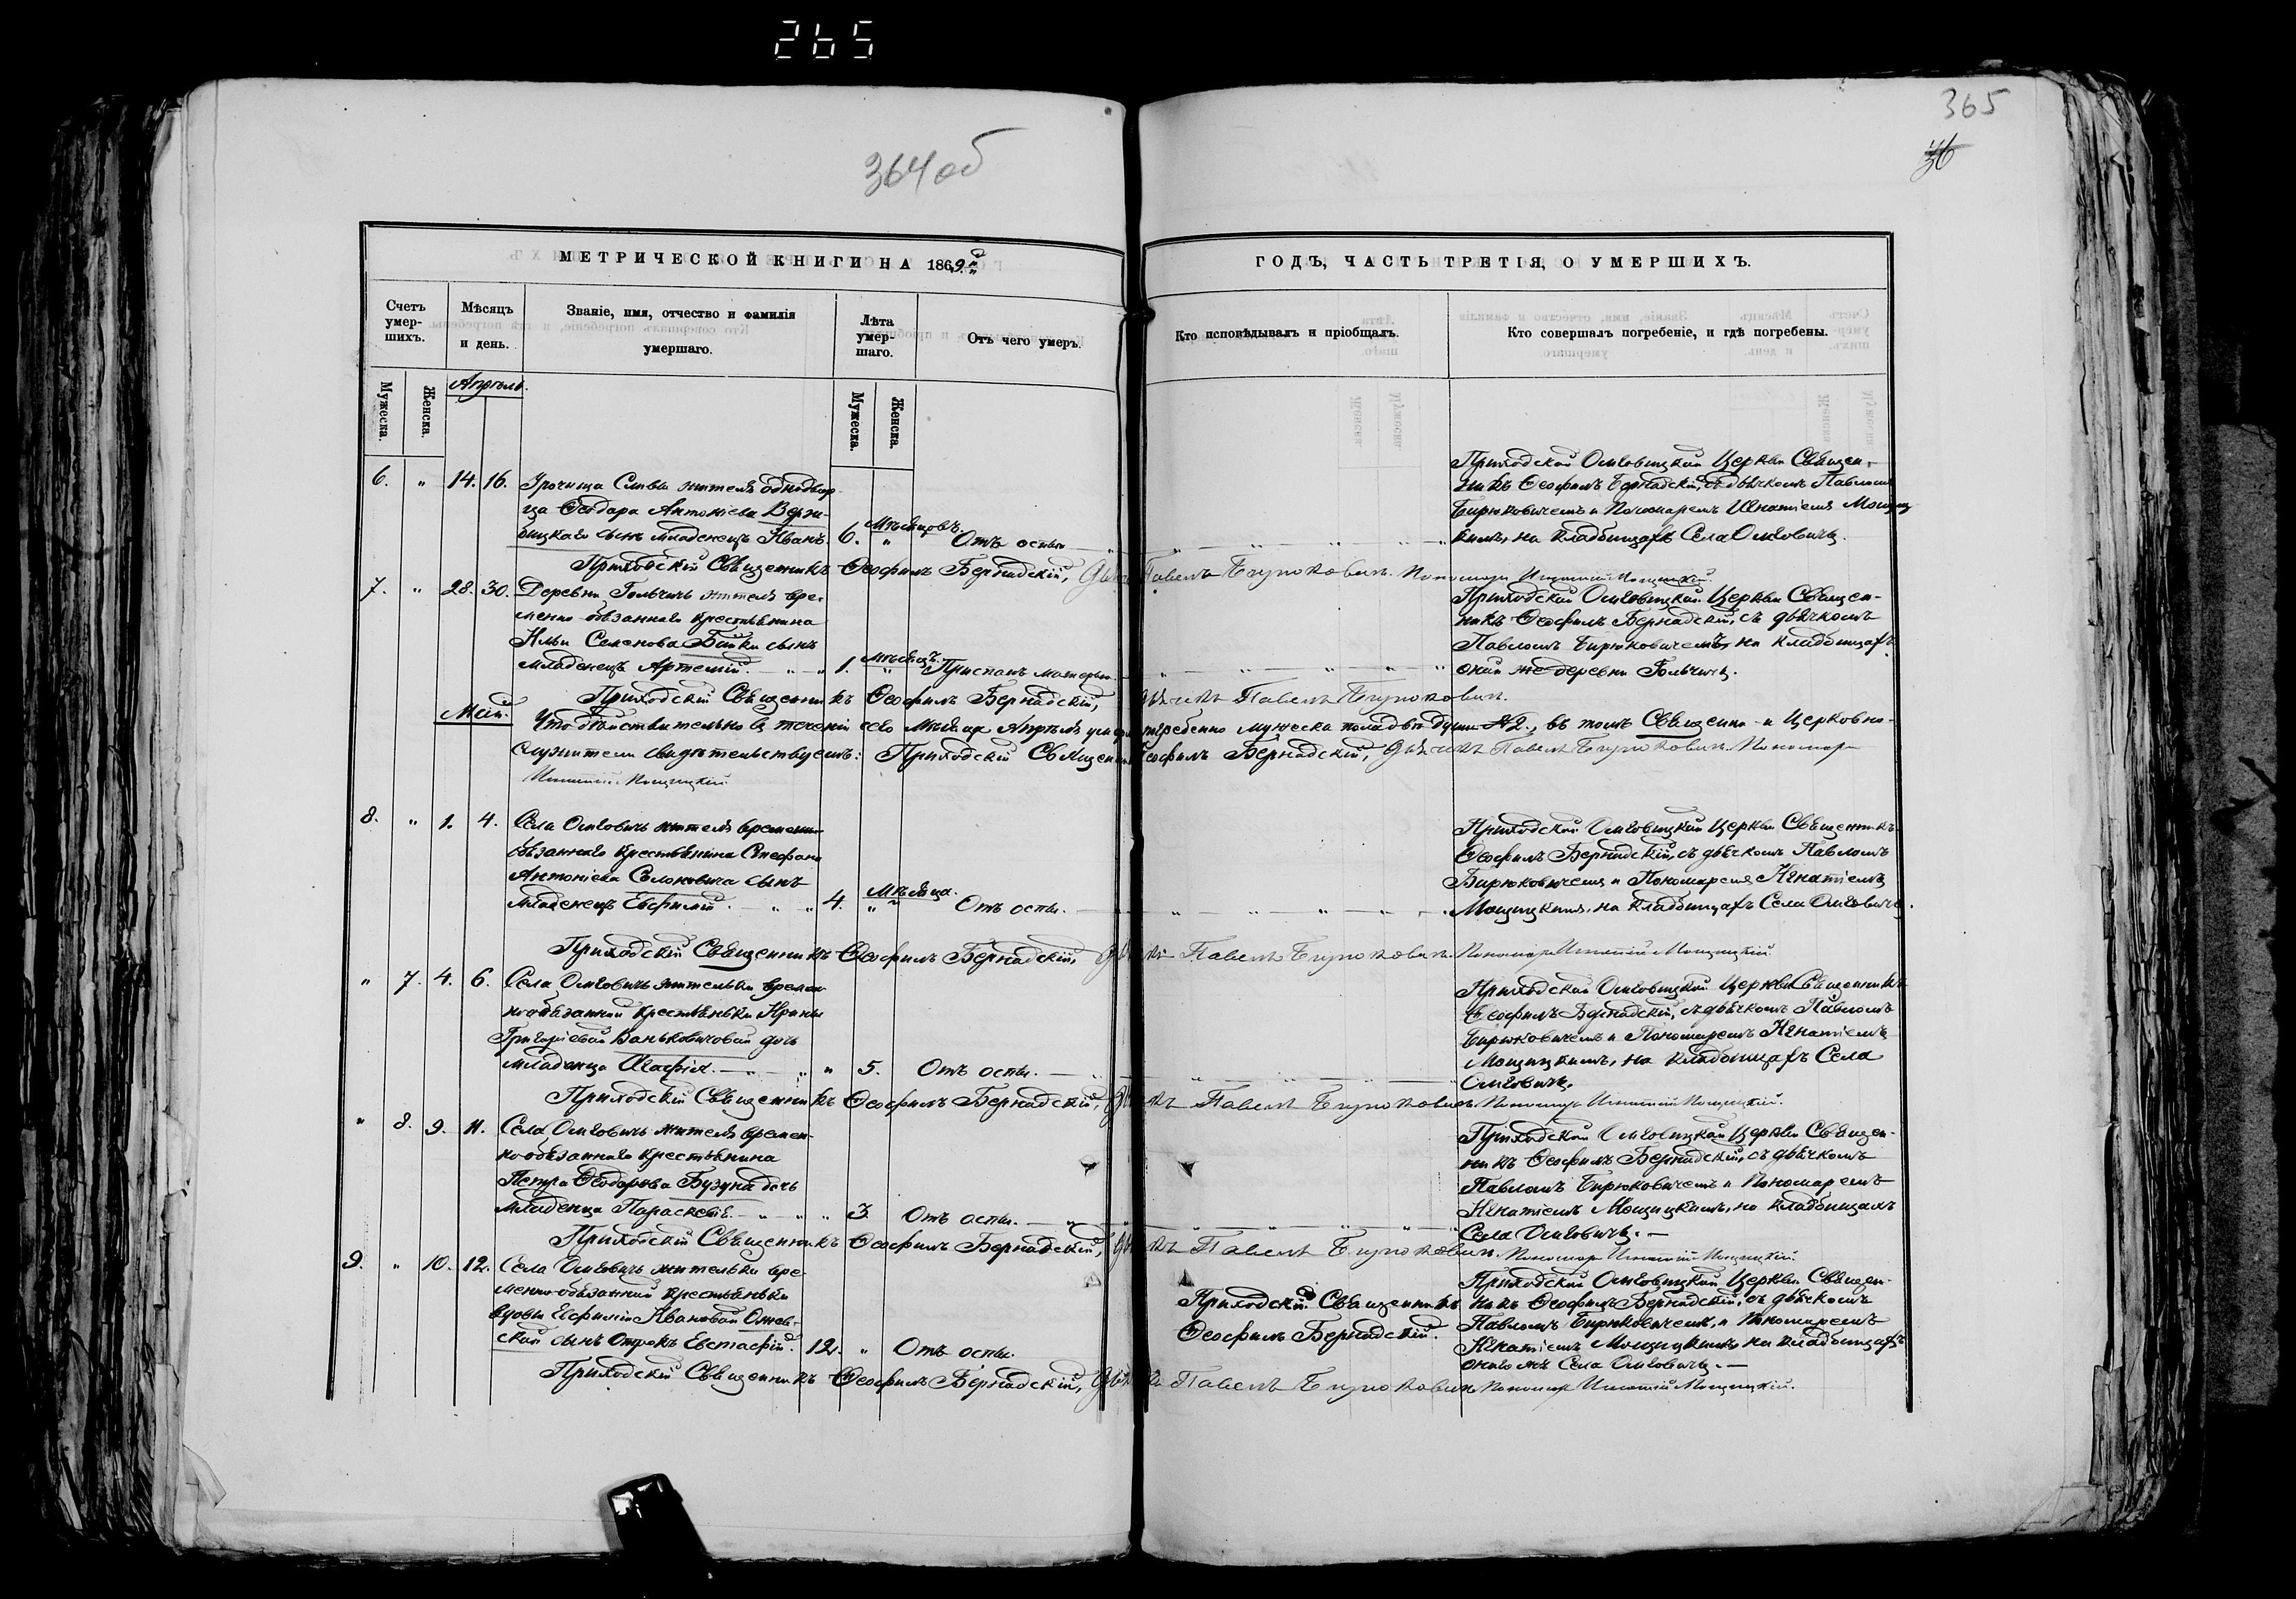 265
364 об
365
36
МЕТРИЧЕСКОЙ КНИГИ НА 1869й
ГОДЪ, ЧАСТЬ ТРЕТІЯ, О УМЕРШИХЪ.
Счетъ умер-шихъ.
Мѣсяцъ и день.
Званіе, имя, отчество и фамилія умершаго.
Лѣта умер-шаго.
Отъ чего умеръ.
Кто исповѣдывалъ и пріобщалъ.
Кто совершалъ погребеніе, и гдѣ погребены.
Мужеска.
Женска.
Апрѣль.
Мужеска.
Женска.
6. " 14. 16.
жителя однодвор-
ца Ѳеодора Антоніева
сынъ младенецъ Иванъ.
6. Мѣсяцовъ. "
Отъ оспы
Приходской Церкви Священ-
никъ Ѳеофилъ Бернадскій, съ дьячкомъ Павломъ
Бирюковичемъ и Пономаремъ Игнатіемъ
на кладбищахъ Села
Приходскій Священникъ Ѳеофилъ Бернадскій, Дьячекъ Павелъ Бирюковичъ. Пономарь Игнатій
7. " 28. 30.
Деревни жителя вре-
менно-обязаннаго крестьянина
Ильи Семенова сынъ
младенецъ Артемій
1. Мѣсяцъ. "
Приспанъ матерью
Приходской Церкви Священ-
никъ Ѳеофилъ Бернадскій, съ дьячкомъ
Павломъ Бирюковичемъ, на кладбищахъ
деревни
Приходскій Священникъ Ѳеофилъ Бернадскій, Дьячекъ Павелъ Бирюковичъ.
Май.
Что дѣйствительно въ теченіи сего Мѣсяца Апрѣля погребенно мужеска пола двѣ души № 2., въ томъ Священно- и Церковно-
служители свидѣтельствуемъ: Приходскій Священникъ Ѳеофилъ Бернадскій, Дьячекъ Павелъ Бирюковичъ. Пономарь
Игнатій
8. " 1. 4.
Села жителя временно
обязаннаго крестьянина Стефана
Антоніева сынъ
младенецъ Евфимій.
4. Мѣсяца. "
Отъ оспы.
Приходской Церкви Священникъ
Ѳеофилъ Бернадскій, съ дьячкомъ Павломъ
Бирюковичемъ и Пономаремъ Игнатіемъ
на кладбищахъ Села
Приходскій Священникъ Ѳеофилъ Бернадскій, Дьячекъ Павелъ Бирюковичъ. Пономарь Игнатій
" 7. 4. 6.
Села жительки времен-
нообязанной крестьянки Ирины
Григоріевой Ваньковичовой дочь
младенца Агафія.
" 5.
Отъ оспы.
Приходской Церкви Священникъ
Ѳеофилъ Бернадскій, съ дьячкомъ Павломъ
Бирюковичемъ и Пономаремъ Игнатіемъ
на кладбищахъ Села
Приходскій Священникъ Ѳеофилъ Бернадскій, Дьячекъ Павелъ Бирюковичъ. Пономарь Игнатій
" 8. 9. 11.
Села жителя времен-
нообязаннаго крестьянина
Петра Ѳеодорова дочь
младенца Параскевія.
" 3.
Отъ оспы.
Приходской Церкви Священ-
никъ Ѳеофилъ Бернадскій, съ дьячкомъ
Павломъ Бирюковичемъ и Пономаремъ
Игнатіемъ на кладбищахъ
Села
Приходскій Священникъ Ѳеофилъ Бернадскій, Дьячекъ Павелъ Бирюковичъ. Пономарь Игнатій
9. " 10. 12.
Села жительки вре-
менно-обязанной крестьянки
вдовы Евфиміи Ивановой
сынъ Отрокъ Евстафій.
12. "
Отъ оспы.
Приходскій Священникъ
Ѳеофилъ Бернадскій.
Приходской Церкви Священ-
никъ Ѳеофилъ Бернадскій, съ дьячкомъ
Павломъ Бирюковичемъ, и Пономаремъ
Игнатіемъ на кладбищахъ
Села
Приходскій Священникъ Ѳеофилъ Бернадскій, Дьячекъ Павелъ Бирюковичъ Пономарь Игнатій